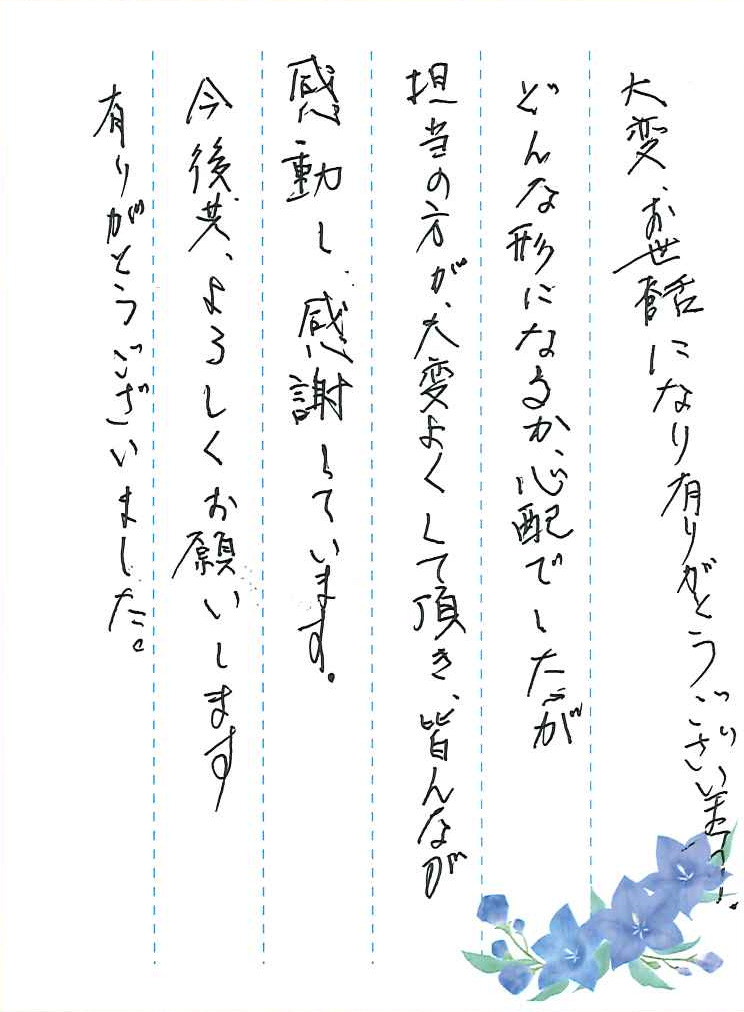 大変、お世話になり有りがとうございます。
どんな形になるか、心配でしたが
担当の方が、大変よくして頂き、皆んなが
感動し、感謝しています。
今後共、よろしくお願いします
有りがとうございました。